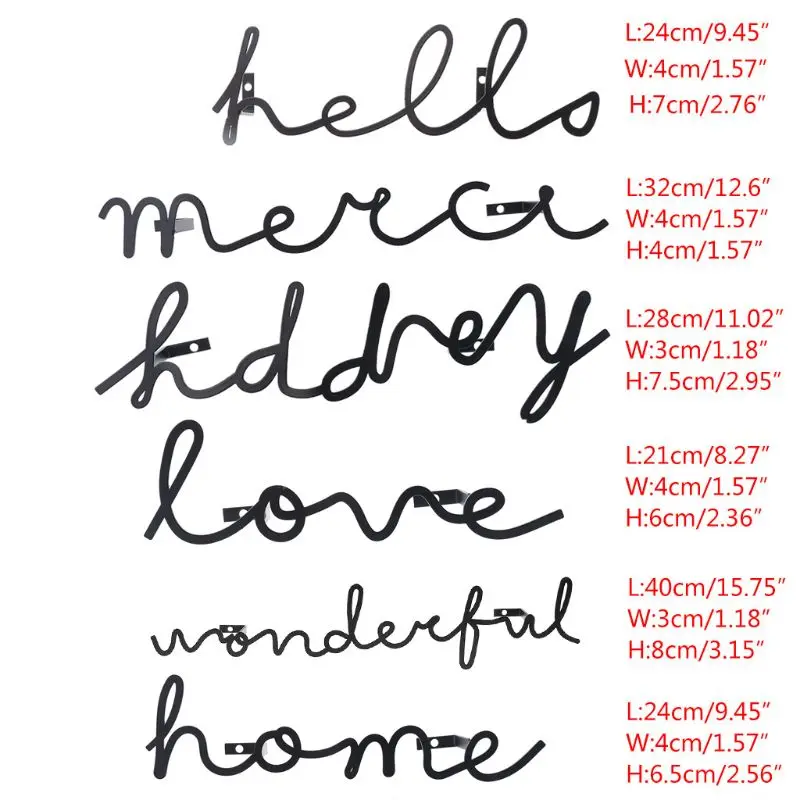 hello
L:24cm/9.45"
W:4cm/1.57"
H:7cm/2.76"
merci
L:32cm/12.6"
W:4cm/1.57"
H:4cm/1.57"
L:28cm/11.02"
W:3cm/1.18"
H:7.5cm/2.95"
love
L:21cm/8.27"
W:4cm/1.57"
H:6cm/2.36"
wonderful
L:40cm/15.75"
W:3cm/1.18"
H:8cm/3.15"
home
L:24cm/9.45"
W:4cm/1.57"
H:6.5cm/2.56"